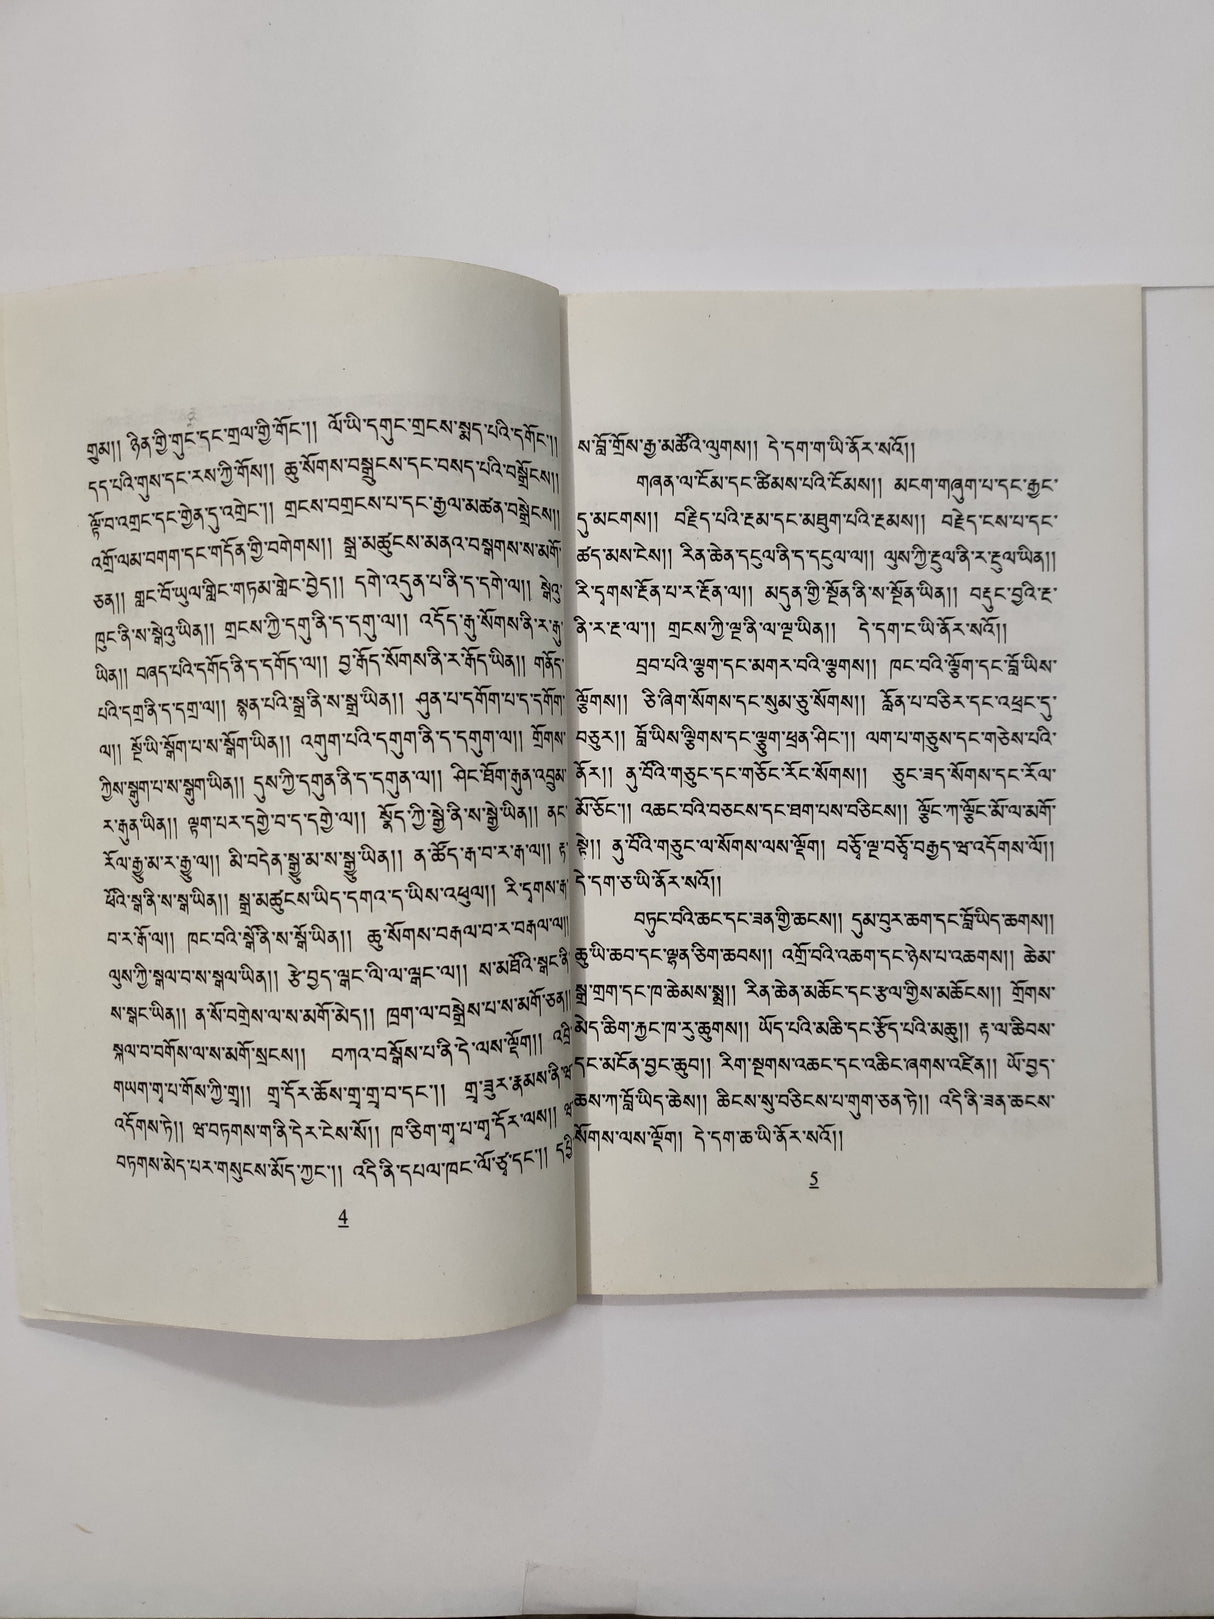 གྲུམ།། ཉིན་གྱི་གུང་དང་གྲལ་གྱི་གོང་།། ལོ་ཡི་དགུང་གྲངས་སྨད་པའི་དགོང་།།
དད་པའི་གུས་དང་རས་ཀྱི་གོས།། ཆུ་སོགས་བསྒྲུངས་དང་བསད་པའི་བསྒྲོངས།།
ལྟོ་བ་འགྲང་དང་གྱེན་དུ་འགྲེང་།། གྲངས་བགྲངས་པ་དང་རྒྱལ་མཚན་བསྒྲེངས།།
འགྲོ་ལམ་བགག་དང་གདོན་གྱི་བགེགས།། སྒྲ་མཚུངས་མནའ་བསྒགས་ས་མགོ་
ཅན།། གླང་བོ་ཡུལ་གླིང་གཏམ་གླེང་བྱེད།། དགེ་འདུན་པ་ནི་ད་དགེ་ལ།། སྒེའུ་
ཁུང་ནི་ས་སྒེའུ་ཡིན།། གྲངས་ཀྱི་དགུ་ནི་ད་དགུ་ལ།། འདོད་རྒུ་སོགས་ནི་ར་རྒུ་
ཡིན།། བཞད་པའི་དགོད་ནི་ད་དགོད་ལ།། བྱ་རྒོད་སོགས་ནི་ར་རྒོད་ཡིན།། གནོད་
པའི་དགྲ་ནི་ད་དགྲ་ལ།། སྙན་པའི་སྒྲ་ནི་ས་སྒྲ་ཡིན།། ཤུན་པ་དགོག་པ་ད་དགོག་
ལ།། སྔོ་ཡི་སྒོག་པ་ས་སྒོག་ཡིན།། འགུག་པའི་དགུག་ནི་ད་དགུག་ལ།། གྲོགས་
ཀྱིས་སྒུག་པ་ས་སྒུག་ཡིན།། དུས་ཀྱི་དགུན་ནི་ད་དགུན་ལ།། ཤིང་ཐོག་རྒུན་འབྲུམ་
ར་རྒུན་ཡིན།། ལྟག་པར་དགྱེ་བ་ད་དགྱེ་ལ།། སྣོད་ཀྱི་སྒྱེ་ནི་ས་སྒྱེ་ཡིན།། ནང་
རོལ་རྒྱུ་མ་ར་རྒྱུ་ལ།། མི་བདེན་སྒྱུ་མ་ས་སྒྱུ་ཡིན།། ན་ཚོད་རྒ་བ་ར་རྒ་ལ།། རྟ་
ཕོའི་སྒ་ནི་ས་སྒ་ཡིན།། སྒྲ་མཚུངས་ཡིད་དགའ་ད་ཡིས་འཕུལ།། རི་དྭགས་རྒ་
བ་ར་རྒོ་ལ།། ཁང་བའི་སྒོ་ནི་ས་སྒོ་ཡིན།། ཆུ་སོགས་བརྒལ་བ་ར་བརྒལ་ལ།།
ལུས་ཀྱི་སྒལ་བ་ས་སྒལ་ཡིན།། རྩེ་བྱད་ལྒང་ལི་ལ་ལྒང་ལ།། ས་མཐོའི་སྒང་ནི་
ས་སྒང་ཡིན།། ན་སོ་བགྲེས་ལ་ས་མགོ་མེད།། ཁྲག་ལ་བསྒྲེས་པ་ས་མགོ་ཅན།།
སྐལ་བ་བགོས་ལ་ས་མགོ་སྲངས།། བཀའ་བསྒོས་པ་ནི་དེ་ལས་ལྡོག།
གཡག་གྲྭ་པ་གོས་ཀྱི་གྲྭ།། གྲྭ་དོར་ཆོས་གྲྭ་གྲྭ་བ་དང་།། གྲྭ་ཟུར་རྣམས་ནི་
འདོགས་ཏེ།། ཝ་བཏགས་ག་ནི་དེར་ངེས་སོ།། ཁ་ཅིག་གྲྭ་པ་གྲྭ་དོར་ལས།། ཝ་
བཏགས་མེད་པར་གསུངས་མོད་ཀྱང་།། འདི་ནི་དཔལ་ཁང་ལོ་ཙཱ་དང་།།
4
ས་བློ་གྲོས་རྒྱ་མཚོའི་ལུགས།། དེ་དག་ག་ཡི་ནོར་སའོ།།
གཞན་ལ་ངོམ་དང་ཚིམས་པའི་ངོམས།། མངག་གཞུག་པ་དང་རྒྱང་
དུ་མངགས།། བརྗིད་པའི་རྔམ་དང་མཐུག་པའི་རྔམས།། བརྗེད་ངས་པ་དང་
ཚད་མས་ངེས།། རིན་ཆེན་དངུལ་ནི་ད་དངུལ་ལ།། ལུས་ཀྱི་རྔུལ་ནི་ར་རྔུལ་ཡིན།།
རི་དྭགས་རྔོན་པ་ར་རྔོན་ལ།། མདུན་གྱི་སྔོན་ནི་ས་སྔོན་ཡིན།། བརྡུང་བྱའི་རྔ་
ནི་ར་རྔ་ལ།། གྲངས་ཀྱི་ལྔ་ནི་ལ་ལྔ་ཡིན།། དེ་དག་ང་ཡི་ནོར་སའོ།།
བྲབ་པའི་ལྕག་དང་མགར་བའི་ལྕགས།། ཁང་བའི་ལྕོག་དང་བློ་ཡིས་
ལྕོགས།། ཅི་ཞིག་སོགས་དང་སུམ་ཅུ་སོགས།། རློན་པ་བཅིར་དང་འཕྲང་དུ་
བཅུར།། བློ་ཡིས་ལྕོགས་དང་ལྕུག་ཕྲན་ཤིང་།། ལག་པ་གཅུས་དང་གཅེས་པའི་
ནོར།། ནུ་བོའི་གཅུང་དང་གཅོང་རོང་སོགས།། ཅུང་ཟད་སོགས་དང་རོལ་
མོ་ཅོང་།། འཆང་བའི་བཅངས་དང་ཐག་པས་བཅིངས།། ལྕོང་ཀ་ལྕོང་མོ་ལ་མགོ་
སྟེ།། ནུ་བོའི་གཅུང་ལ་སོགས་ལས་ལྡོག། བཅོ་ལྔ་བཅོ་བརྒྱད་ཝ་འདོགས་ལོ།།
དེ་དག་ཅ་ཡི་ནོར་སའོ།།
བཏུང་བའི་ཆང་དང་ཟན་གྱི་ཆངས།། དུམ་བུར་ཆག་དང་བློ་ཡིད་ཆགས།།
ཆུ་ཡི་ཆབ་དང་ལྷན་ཅིག་ཆབས།། འགྲོ་བའི་འཆག་དང་ཉེས་པ་འཆགས།། ཆེམ་
སྒྲ་གྲག་དང་ཁ་ཆེམས་སྨྲ།། རིན་ཆེན་མཆོང་དང་རྩལ་གྱིས་མཆོངས།། གྲོགས་
མེད་ཆིག་རྐྱང་ཁ་རུ་ཆུགས།། ཡོད་པའི་མཆི་དང་རྩོད་པའི་མཆུ།། རྟ་ལ་ཆིབས་
དང་མངོན་བྱང་ཆུབ།། རིག་སྔགས་འཆང་དང་འཆིང་ཞགས་འཛིན།། ཡོ་བྱད་
ཆས་ཀ་བློ་ཡིད་ཆེས།། ཆིངས་སུ་བཅིངས་པ་གུག་ཅན་ཏེ།། འདི་ནི་ཟན་ཆངས་
སོགས་ལས་ལྡོག། དེ་དག་ཆ་ཡི་ནོར་སའོ།།
5